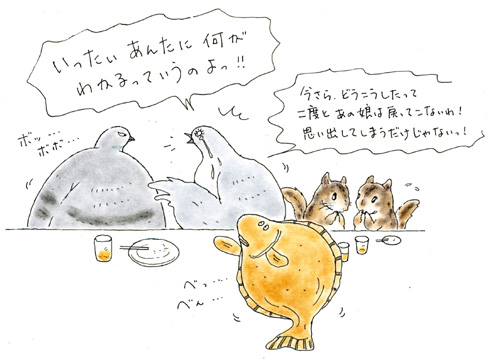 いったい あんたに 何が
わかるっていうのよっ!!
今さら、どうこうしたって
二度と あの娘は戻ってこないわ!
思い出してしまうだけじゃないっ!
ボッ‥‥
ボボ‥‥
べっ‥‥
べん‥‥